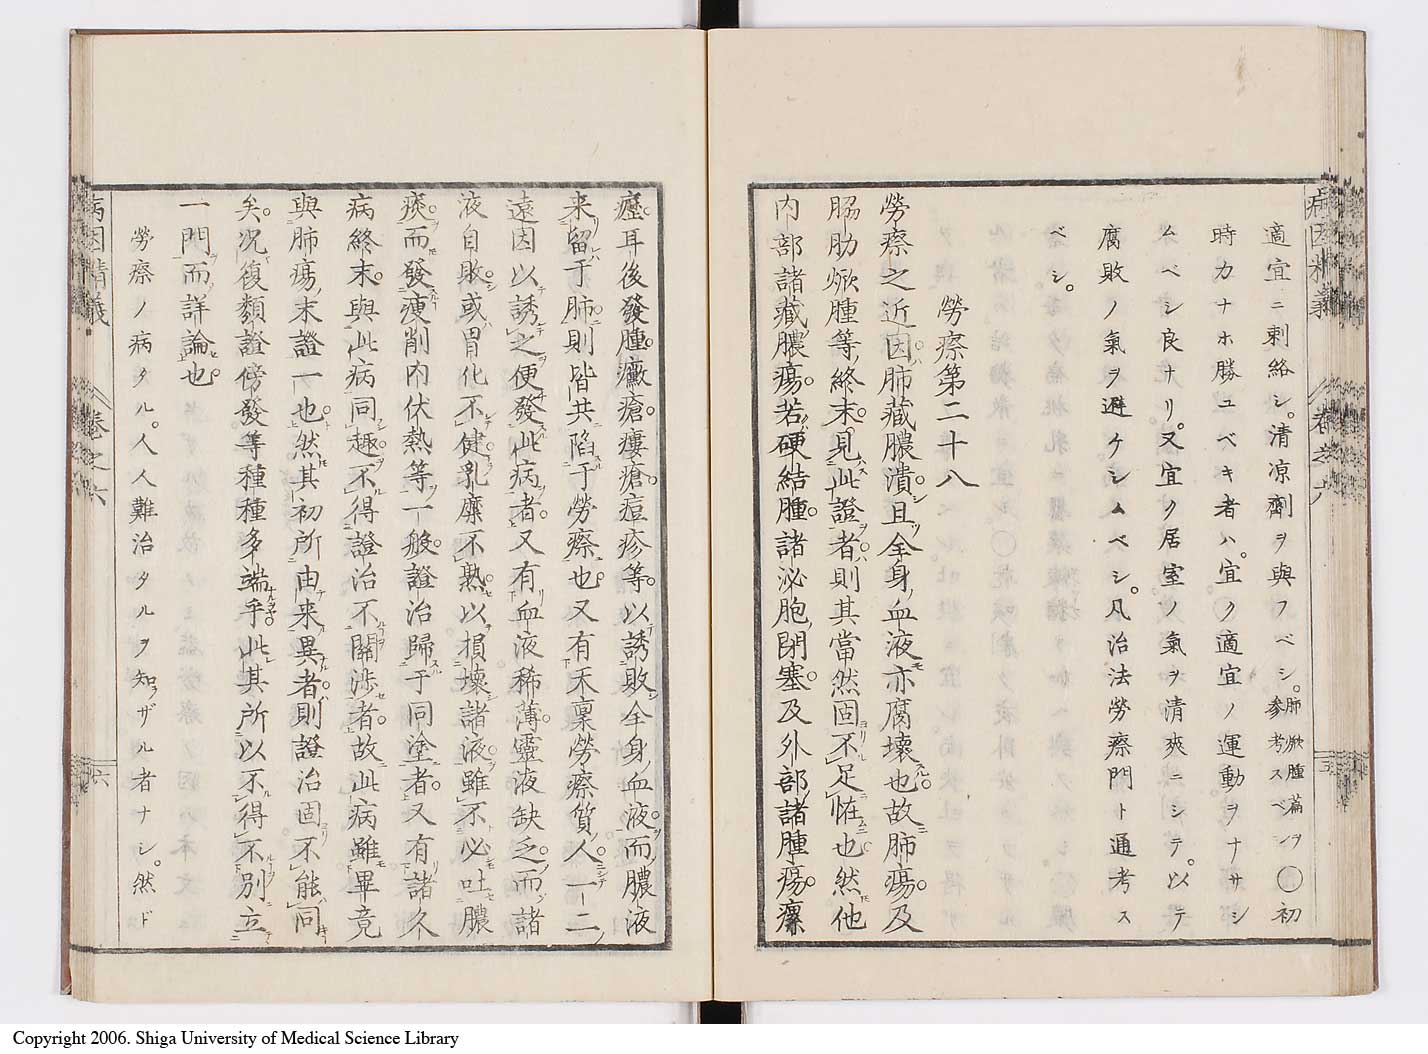 病因精義 巻之六 五
適宜ニ刺絡シ。清凉劑ヲ與フベシ。肺焮腫篇ヲ參考スベシ〇初
時カナホ勝ユベキ者ハ。宜ク適宜ノ運動ヲナサシ
ムベシ良ナリ。又宜ク居室ノ氣ヲ清爽ニシテ。以テ
腐敗ノ氣ヲ避ケシムベシ。凡治法勞瘵門ト通考ス
ベシ。
勞瘵第二十八
勞瘵之近因。肺藏膿潰。且全身血液亦腐壞也。故肺瘍及
脇肋焮腫等。終末見此證者。則其當然固不足恠也。然他
内部諸藏膿瘍。若硬結腫。諸泌胞閉塞。及外部諸腫瘍。瘰
癧。耳後發腫。黴瘡。瘻瘡。痘疹等。以誘敗全身血液。而膿液
来留于肺。則皆共陷于勞瘵也。又有天稟勞瘵質人。一二
遠因以誘之。便發此病者。又有血液稀薄。靈液缺乏。而諸
液自敗。或胃化不健。乳糜不熟。以損壞諸液。雖不必吐膿
痰。而發瘦削内伏熱等。一般證治歸于同塗者。又有諸久
病終末。與此病同趣。不得證治不關渉者。故此病雖畢竟
與肺瘍末證一也。然其初所由来異者。則證治固不能同
矣。況復類證傍發等種種多端乎。此其所以不得不別立
一門而詳論也。
勞瘵ノ病タル。人人難治タルヲ知ラザル者ナシ。然ド
病因精義 巻之六 六
Copyright 2006. Shiga University of Medical Science Library